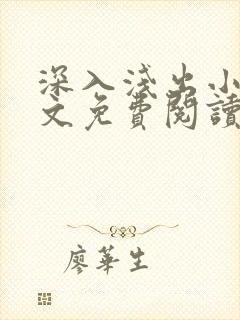 深入淺出小
文免費閱讀
廖華生